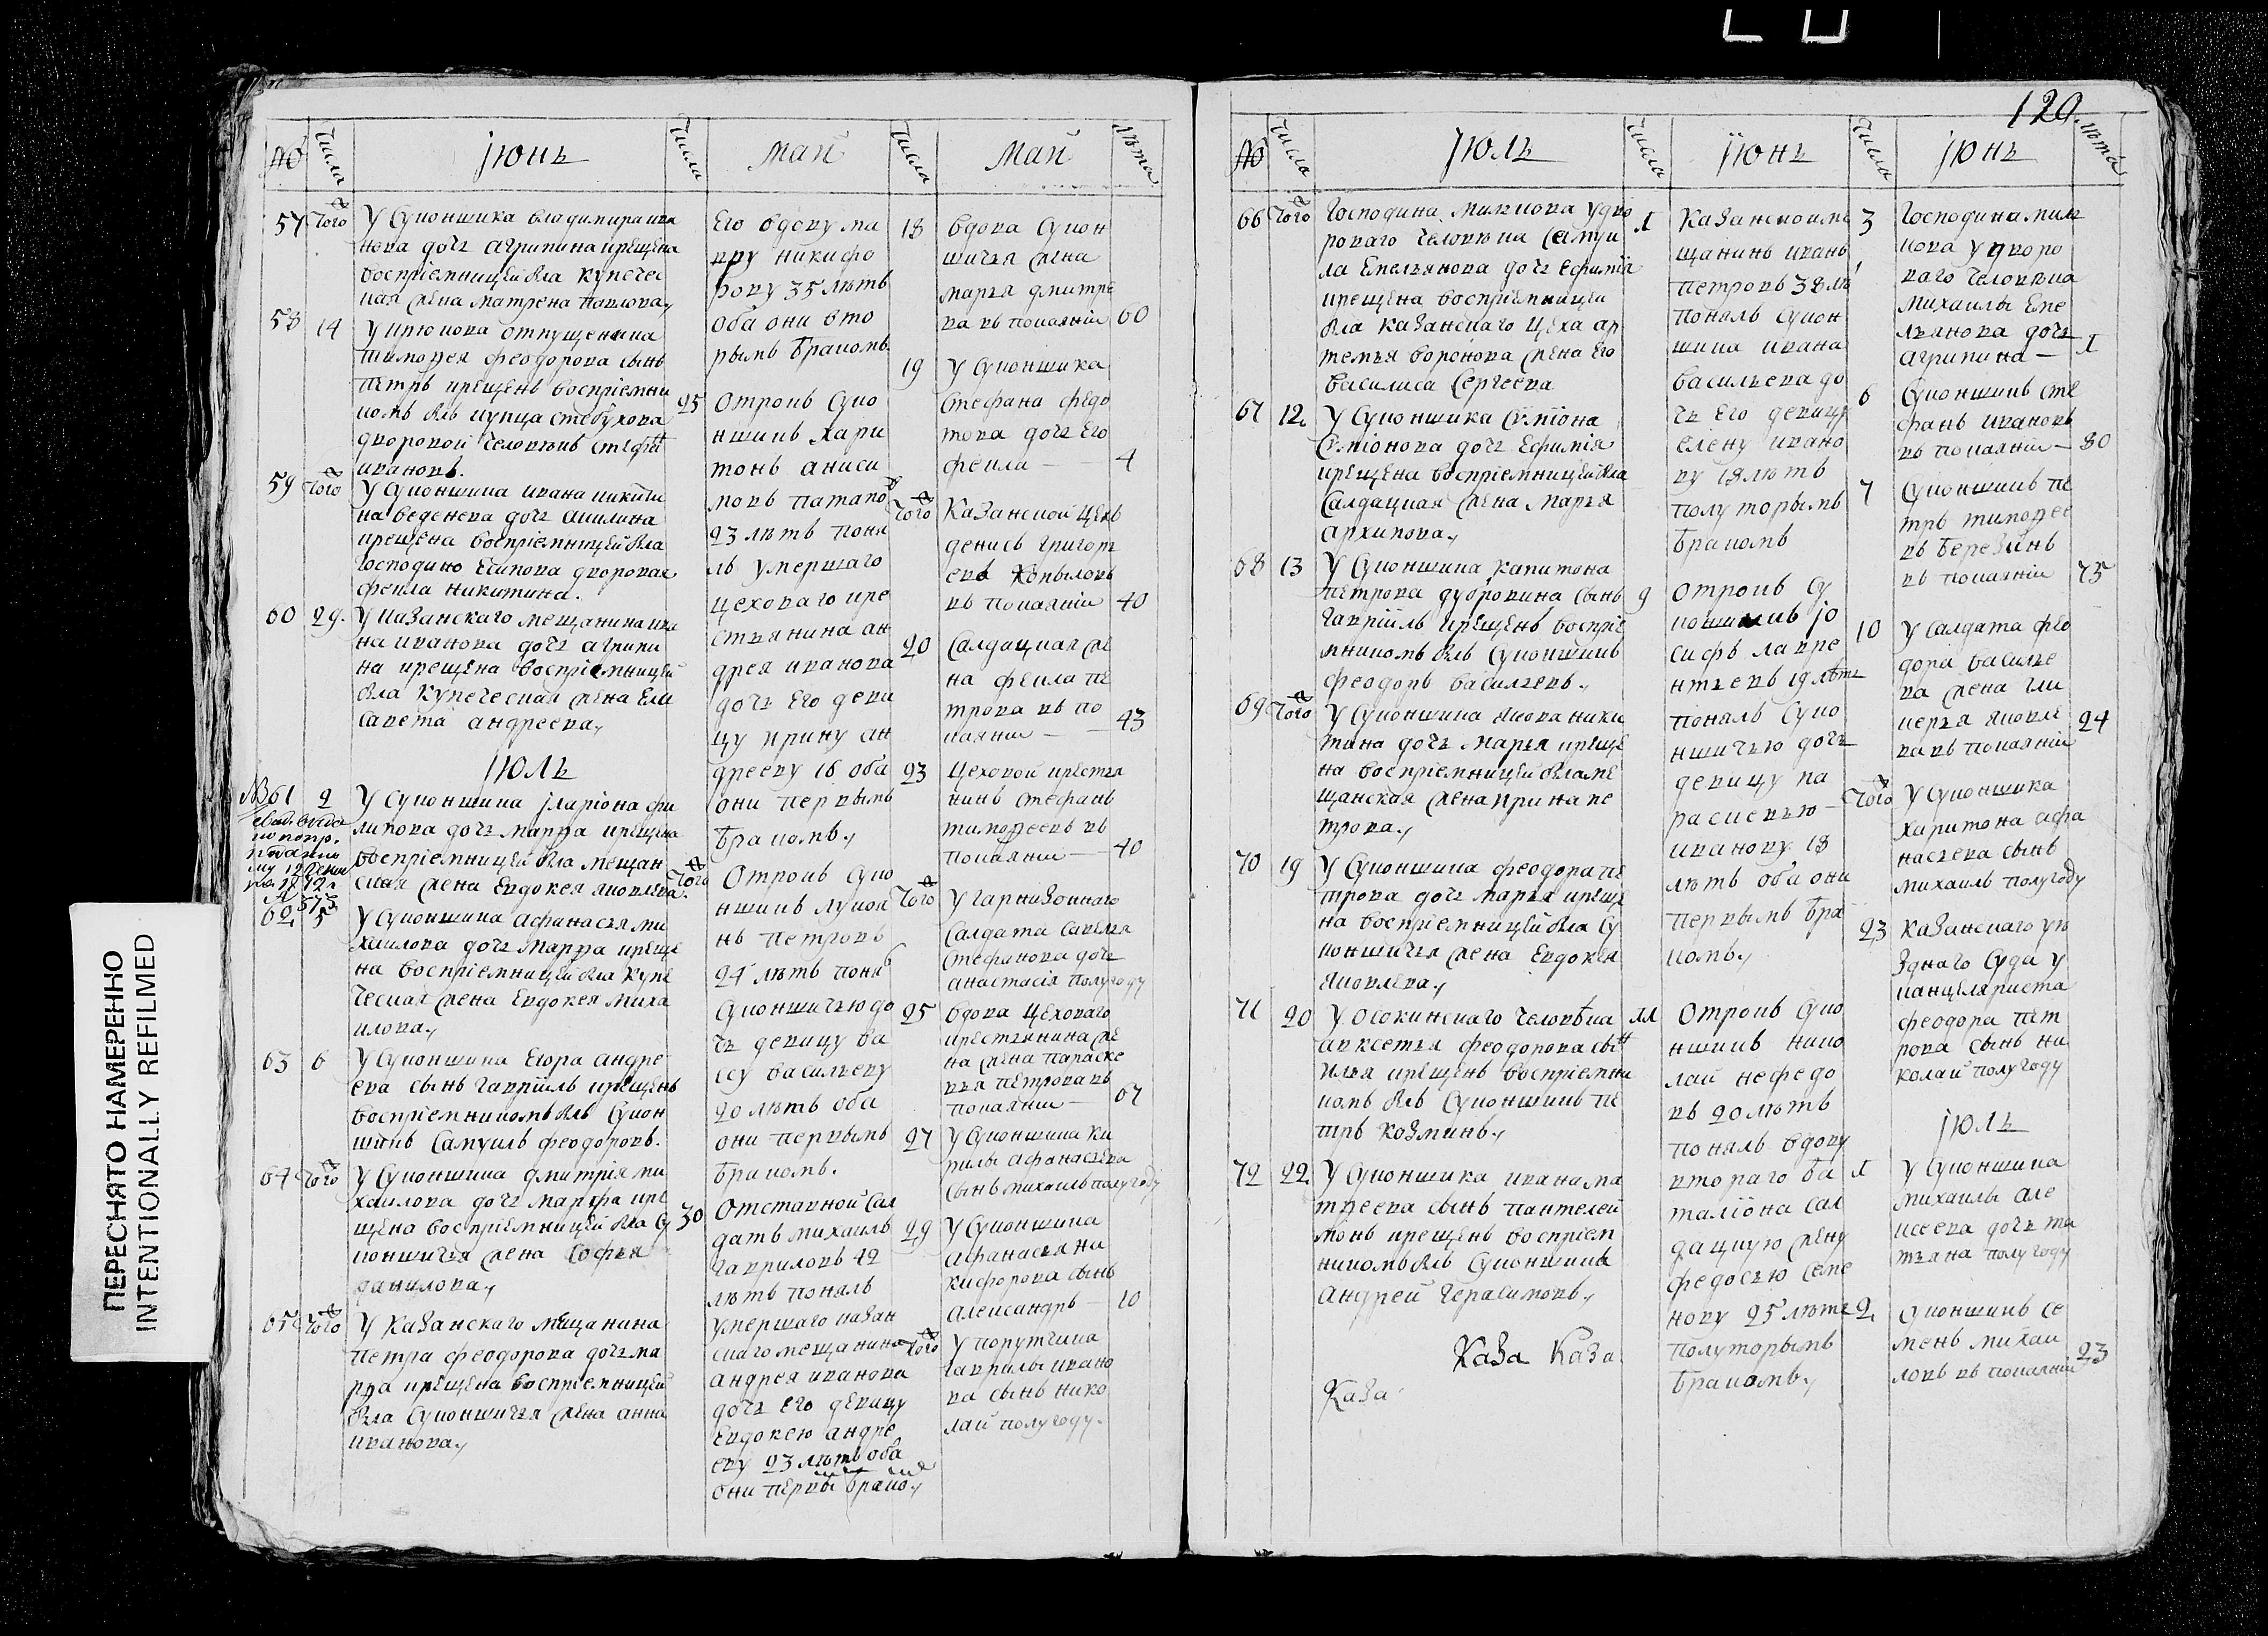 120.
№ числа июнь числа май числа май лѣта
57 того У Суконщика владимира ива
нова дочь агрипина крещена
восприемницей бла купечес
кая жена матрена павлова,
58 14 У отпущеника
тимофея феодорова сынъ
петръ крещенъ восприемни
комъ блъ купца
дворовой человѣкъ стефан
ивановъ.
59 того У Суконщика ивана никити
на веденева дочь акилина
крещена восприемницей бла
господино есипова дворовая
фекла никитина.
60 29. У казанскаго мещанина ива
на иванова дочь агрипи
на крещена восприемницей
бла купеческая жена ели
савета андреева,
июль
№ 61 2 У Суконщика иларіона фи
липова дочь марфа крещена
восприемницей бла мещан
ская жена евдокея яковлева.
62 5 У Суконщика афанасья ми
хаилова дочь марфа креще
на восприемницей бла купе
ческая жена евдокея миха
илова,
63 6 У Суконщика егора андре
ева сынъ гавріилъ крещенъ
восприемникомъ блъ Сукон
щикъ самуилъ феодоровъ.
64 того У Суконщика дмитрія ми
хаилова дочь марфа кре
щена восприемницей бла су
конщичья жена софья
данилова,
65 того У казанскаго мещанина
петра феодорова дочь ма
рфа крещена восприемницей
бла суконщичья жена анна
иванова,
его вдову ма
вру никифо
рову 35 лѣтъ
оба они вто
рымъ бракомъ.
25 Отрокъ Суко
нщикъ хари
тонъ аниси
мовъ патапо
23 лѣтъ поня
лъ умершаго
цеховаго кре
стьянина ан
дрея иванова
дочь его деви
цу ирину ан
дрееву 16 оба
они первымъ
бракомъ,
того Отрокъ Суко
нщикъ лукоя
нъ петровъ
24 лѣтъ поня
Суконщичью до
чь девицу ва
ссу васильеву
20 лѣтъ оба
они первымъ
бракомъ.
30 Отставной сал
датъ михаилъ
гавриловъ 42
лѣтъ понялъ
умершаго казан
скаго мещанина
андрея иванова
дочь его девицу
евдокею андре
еву 23 лѣтъ оба
они первы брако,
18 вдова Сукон
щичья жена
марья дмитре
ва въ покаяніи 60
19 У Суконщика
стефана федо
това дочь его
фекла — 4
того Казанской цехъ
денисъ григорь
евъ Копыловъ
въ покаяніи 40
20 Салдацкая же
на фекла пе
трова въ по
каянии — 43
23 цеховой крестья
нинъ стефанъ
тимофеевъ въ
покаянии — 40
того У гарнизоннаго
салдата савелья
стефанова дочь
анастасія полугоду
25 вдова цеховаго
крестьянина же
на жена параске
вья петрова въ
покаянии — 67
27 У Суконщика ки
рилы афанасьева
сынъ михаилъ полугоду
29 У Суконщика
афанасья ни
кифорова сынъ
александръ — 10
того У порутчика
гаврилы ивано
ва сынъ нико
лай полугоду.
№ числа июль числа июнь числа июнь лѣта
66 того господина милкова у дво
роваго человѣка самуи
ла емельянова дочь ефимія
крещена восприемницей
бла казанскаго цеха ар
темья воронова жена его
василиса сергеева
67 12. У Суконщика Симіона
Симіонова дочь ефимія
крещена восприемницей бла
салдацкая жена марья
архипова,
68 13 У Суконщика капитона
петрова дубровина сынъ
гавріилъ крещенъ воспріе
мникомъ блъ суконщикъ
феодоръ васильевъ.
69 того У Суконщика якова ники
тина дочь марья креще
на восприемницей бла ме
щанская жена ирина пе
трова,
70 19 У Суконщика феодора пе
трова дочь марья креще
на восприемницей бла су
конщичья жена евдокея
яковлева,
71 20 У Осокинскаго человѣка
авксетья феодорова сын
илья крещенъ восприемни
комъ блъ суконщикъ пе
тръ козминъ,
72 22 У Суконщика ивана ма
твеева сынъ пантелей
монъ крещенъ восприем
никомъ блъ Суконщикъ
андрей герасимовъ,
Каза Каза
Каза
1 казанской ме
щанинъ иванъ
петровъ 38 лѣ
понялъ сукон
щика ивана
васильева до
чь его девицу
елену ивано
ву 18 лѣтъ
полуторымъ
бракомъ
9 Отрокъ су
конщикъ іо
сифъ лавре
нтьевъ 19 лѣтъ
понялъ суко
нщичью дочь
девицу па
расковью
иванову 18
лѣтъ оба они
первымъ бра
комъ,
11 Отрокъ суко
нщикъ нико
лай нефедо
въ 20 лѣтъ
понялъ вдову
втораго ба
таліона сал
дацкую жену
федосью семе
нову 25 лѣтъ
полуторымъ
бракомъ,
3 господина милк
кова у дворо
ваго человѣка
михаилы еме
льянова дочь
агрипина — 1
6 Суконщикъ сте
фанъ ивановъ
въ покаяніи — 80
7 Суконщикъ пе
тръ тимофее
въ березинъ
въ покаяніи 75
10 У салдата фео
дора василье
ва жена гли
керья яковле
ва въ покаяніи 24
того У Суконщика
харитона афа
насьева сынъ
михаилъ полугоду
23 казанскаго уѣ
зднаго суда у
канцеляриста
феодора пет
рова сынъ ни
колай полугоду
июль
1 У Суконщика
михаилы але
ксеева дочь та
тьяна полугоду
2 суконщикъ се
менъ михаи
ловъ въ покаяніи 23
ПЕРЕСНЯТО НАМЕРЕННО
INTENTIONALLY REFILMED